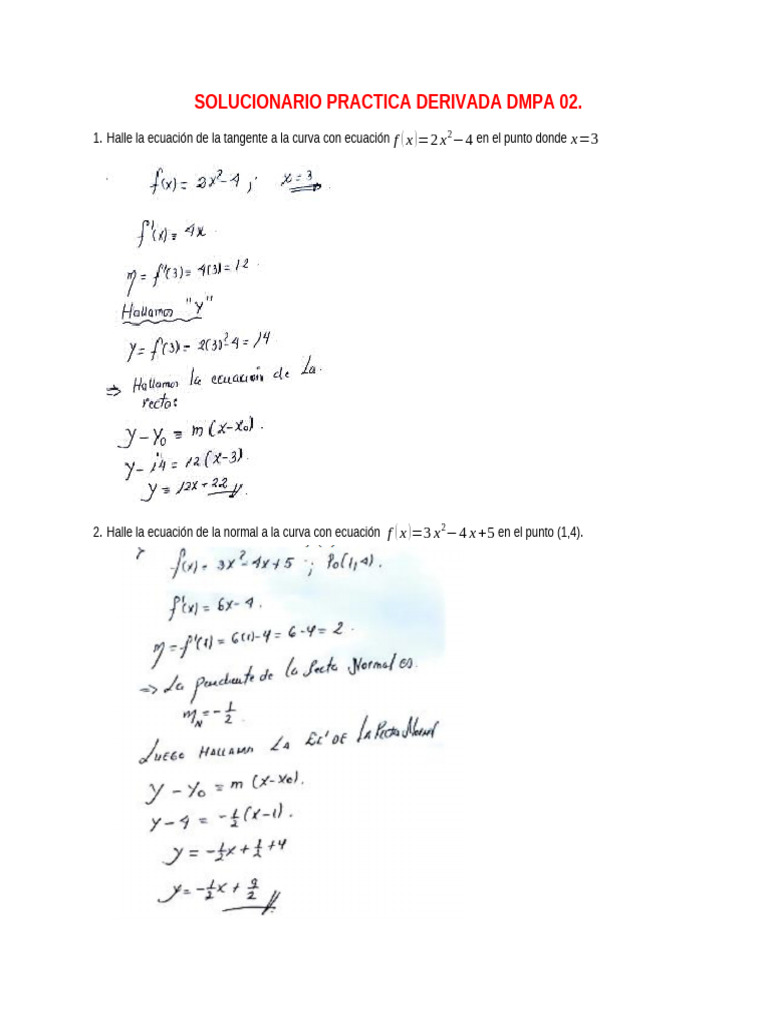 SOLUCIONARIO PRACTICA DERIVADA DMPA 02.
1. Halle la ecuación de la tangente a la curva con ecuación f(x)=2x²−4 en el punto donde x=3
f(x) = 2x²-4 ; x=3
f'(x) = 4x
m = f'(3) = 4(3) = 12
Hallamos "y"
y = f'(3) = 2(3)²-4 = 14
⇒ Hallamos la ecuación de La
recta:
y-y₀ = m(x-x₀).
y-14 = 12(x-3).
y = 12x + 22
2. Halle la ecuación de la normal a la curva con ecuación f(x)=3x²−4x+5 en el punto (1,4).
f(x) = 3x²-4x+5 ; P₀(1,4).
f'(x) = 6x-4.
m = f'(1) = 6(1)-4 = 6-4 = 2
=> La pendiente de la Recta Normal es.
m_N = -1/2
LUEGO HALLAMO LA EC' DE LA Recta Normal
y-y₀ = m(x-x₀).
y-4 = -1/2(x-1).
y = -1/2x + 1/2 + 4
y = -1/2x + 9/2